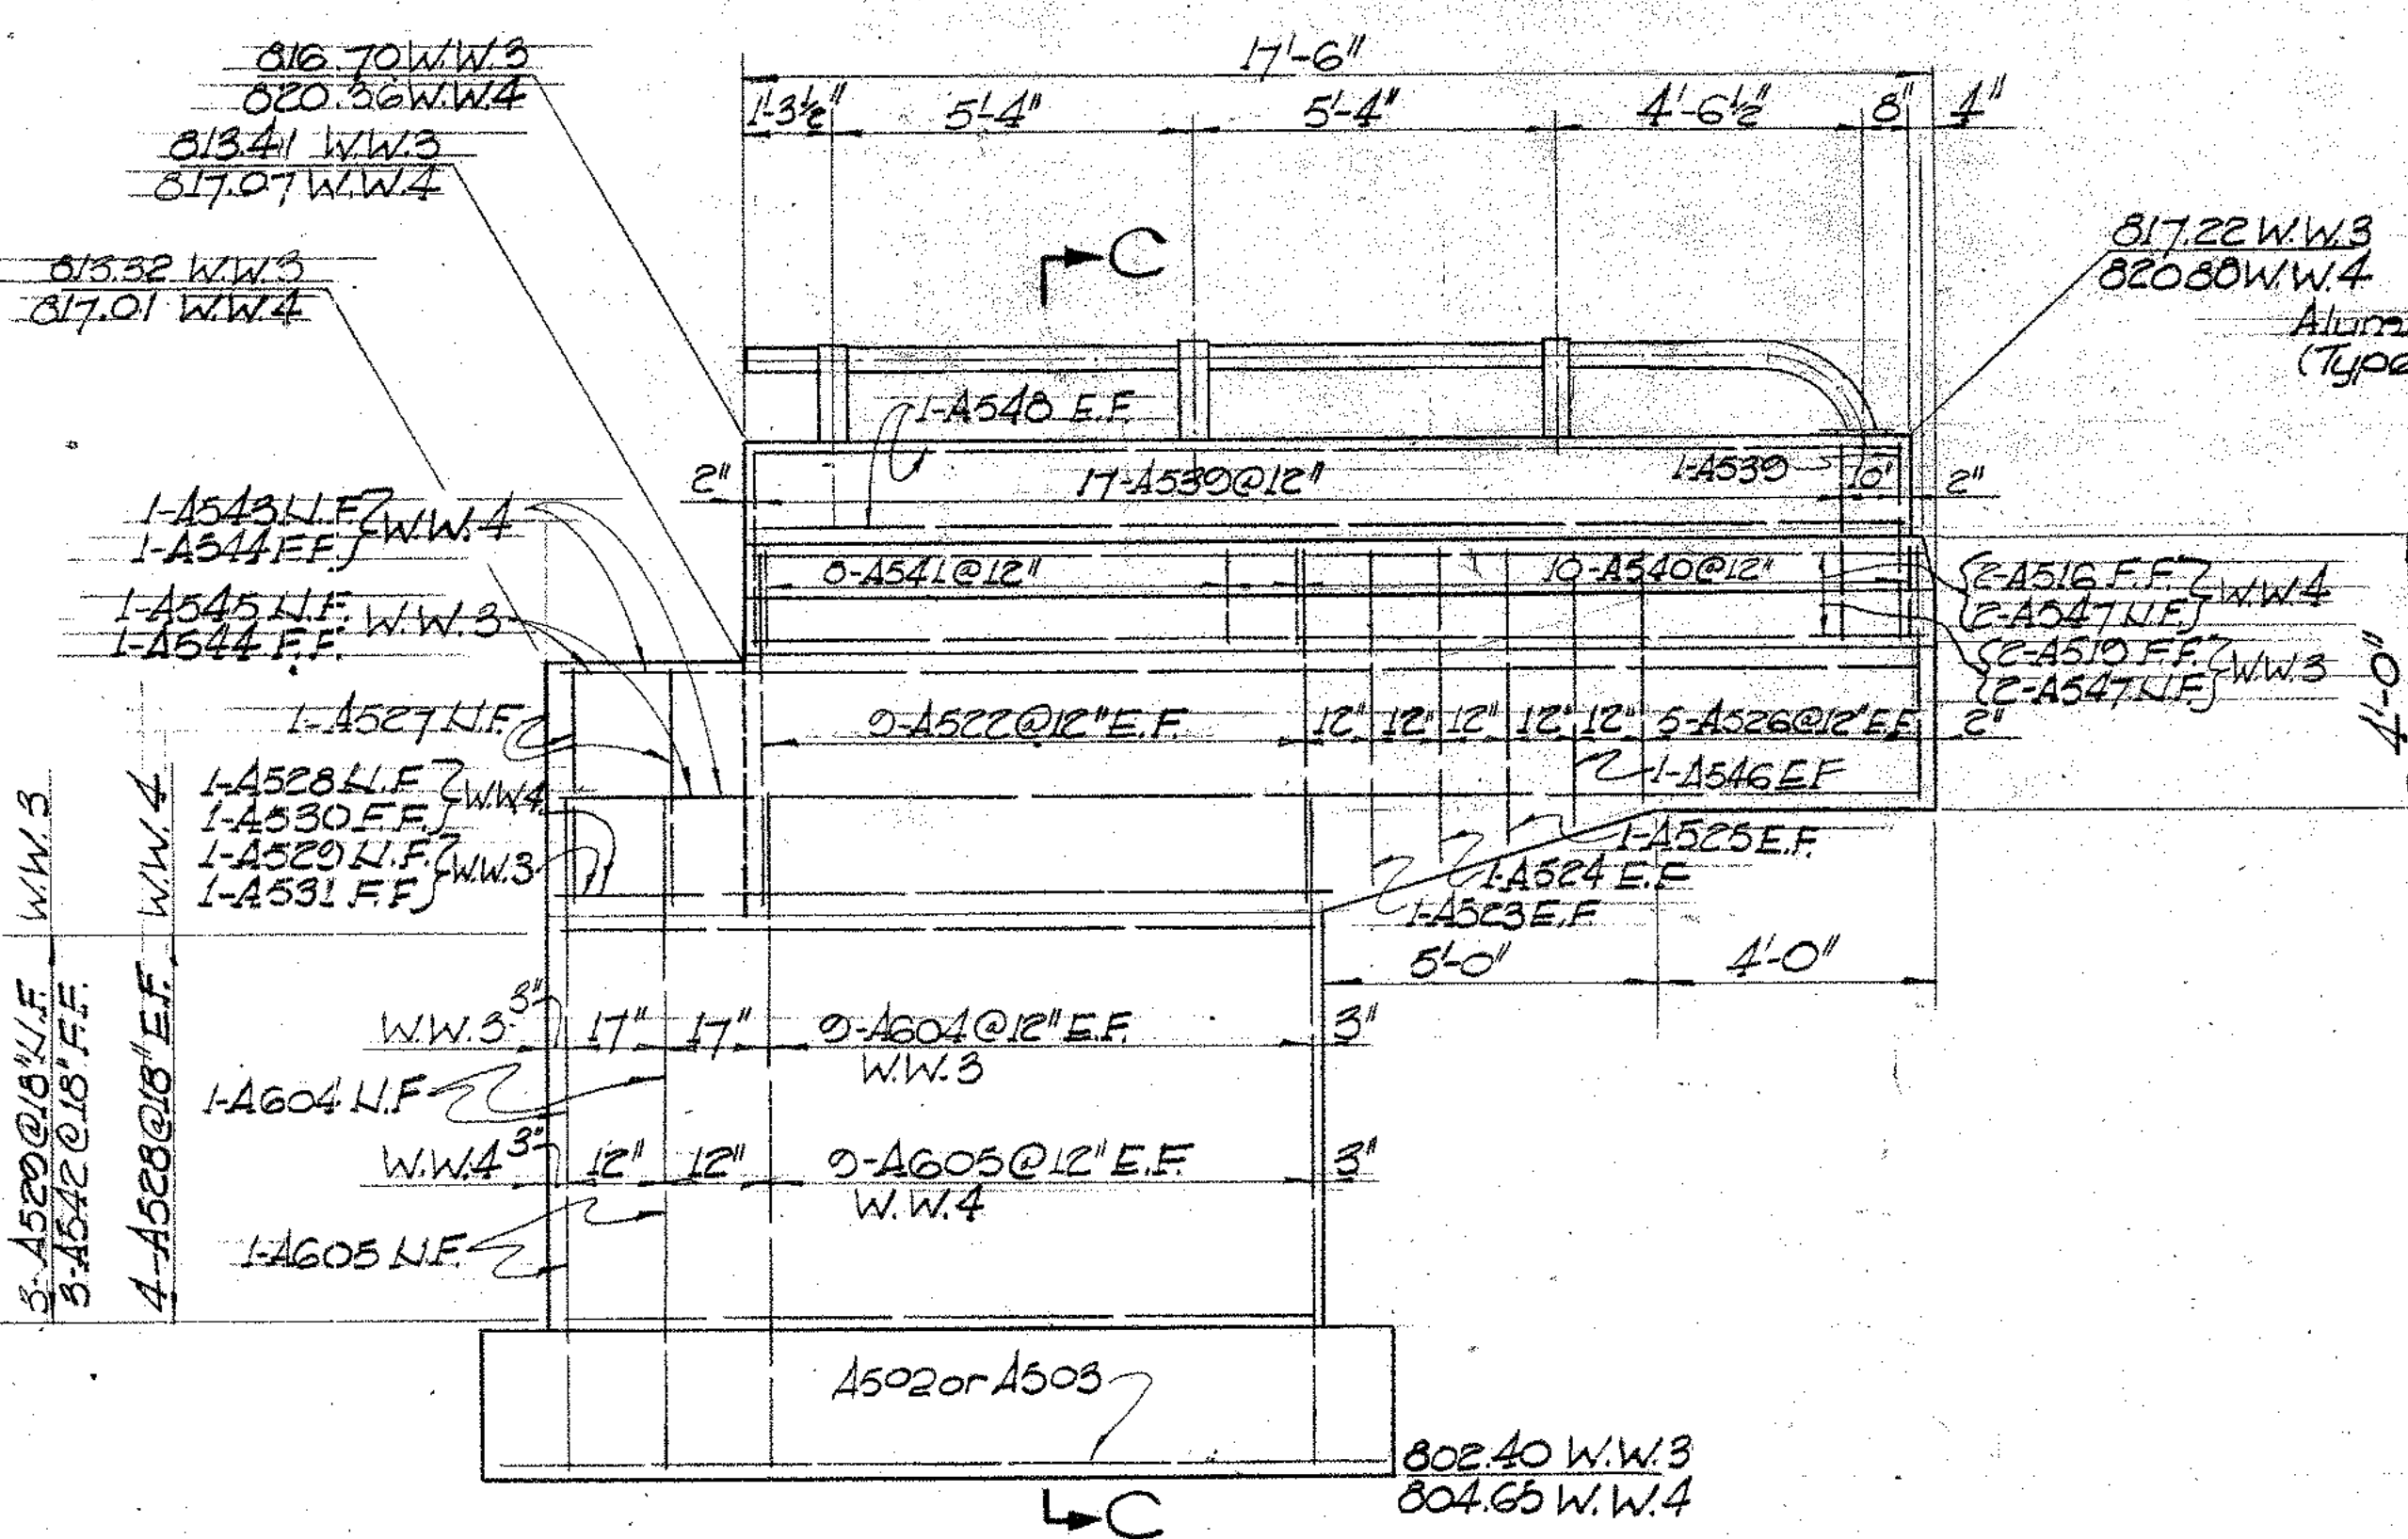 816.70 W.W.3
820.36 W.W.4
813.41 W.W.3
817.07 W.W.4
813.32 W.W.3
817.01 W.W.4
17'-6"
1'-3½"
5'-4"
5'-4"
4'-6½"
8"
4"
C
817.22 W.W.3
820.88 W.W.4
(Type
1-A548 E.F.
2"
17-A539@12"
1-A539
10"
2"
1-A543 N.F. } W.W.4
1-A544 F.F.
1-A545 N.F. W.W.3
1-A544 F.F.
8-A541@12"
10-A540@12"
2-A516 F.F. } W.W.4
2-A547 N.F.
2-A519 F.F. } W.W.3
2-A547 N.F.
4'-0"
1-A527 N.F.
9-A522@12" E.F.
12" 12" 12" 12" 12"
5-A526@12" E.F.
2"
1-A546 E.F
1-A528 N.F } W.W.4
1-A530 F.F.
1-A529 N.F. } W.W.3
1-A531 F.F
1-A525 E.F.
1-A524 E.F
1-A523 E.F
5'-0"
4'-0"
3-A529@18" N.F. W.W.3
3-A542@18" F.F.
4-A528@18" E.F. W.W.4
W.W.3 3" 17" 17" 9-A604@12" E.F. 3"
W.W.3
1-A604 N.F
W.W.4 3" 12" 12" 9-A605@12" E.F. 3"
W.W.4
1-A605 N.F.
A502 or A503
802.40 W.W.3
804.65 W.W.4
C